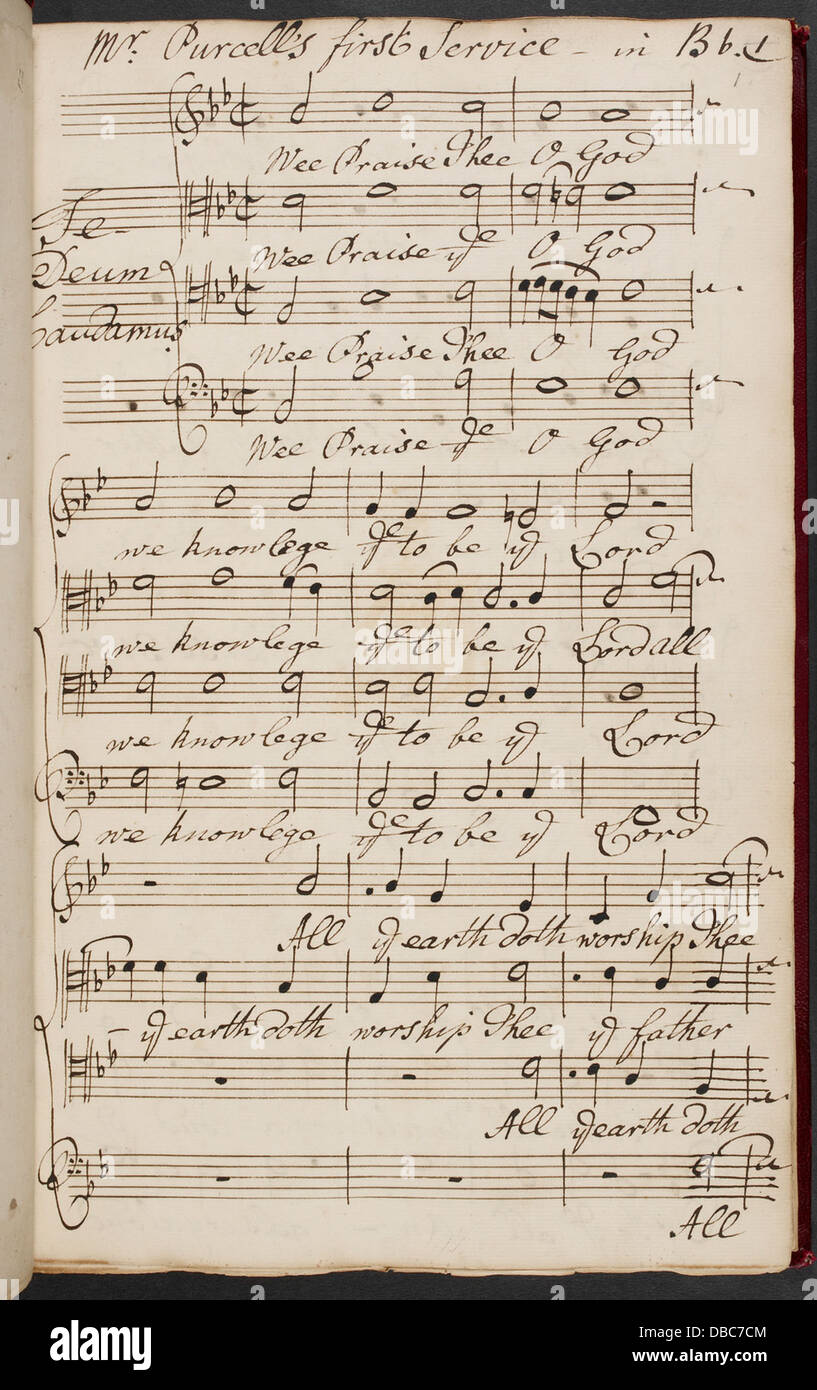 Mr. Purcell's first Service - in Bb.
1
Te
Deum
Laudamus
Wee Praise Thee O God
Wee Praise ye O God
Wee Praise Thee O God
Wee Praise ye O God
we knowlege ye to be ye Lord
we knowlege ye to be ye Lord all
we knowlege ye to be ye Lord
we knowlege ye to be ye Lord
All ye earth doth worship Thee
ye earth doth worship Thee ye father
All ye earth doth
All
alamy stock photo
DBC7CM
www.alamy.com